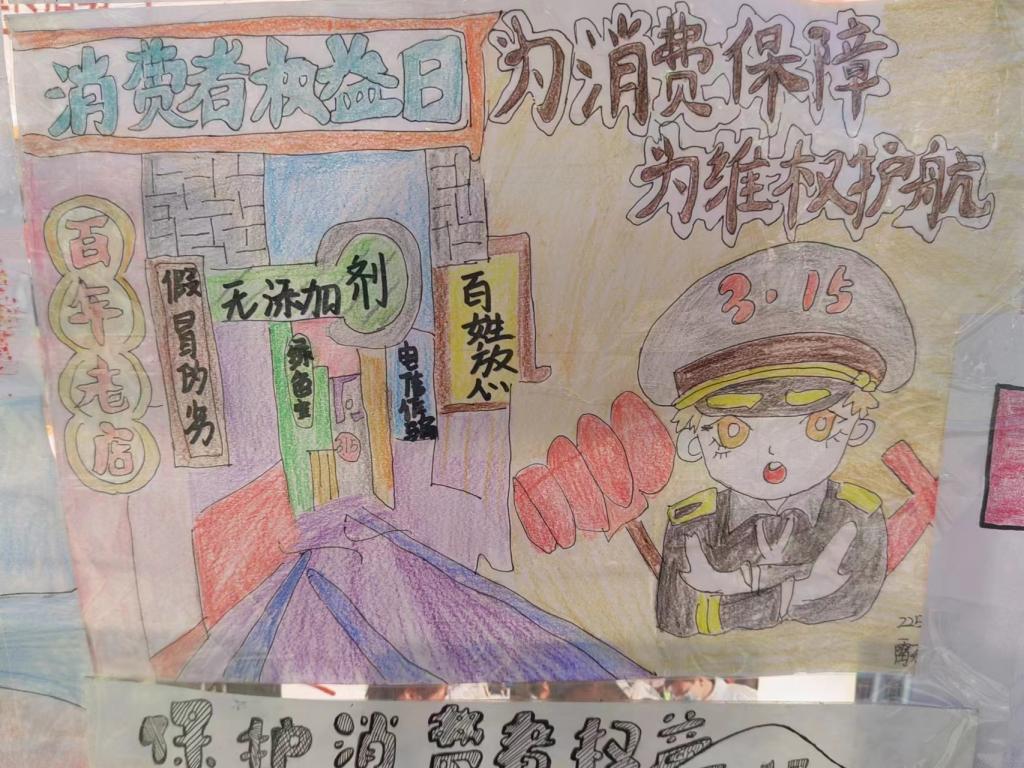 消费者权益日
为消费保障
为维权护航
百年老店
假冒伪劣
无添加剂
绿色
百姓放心
3·15
225
保护消费者权益